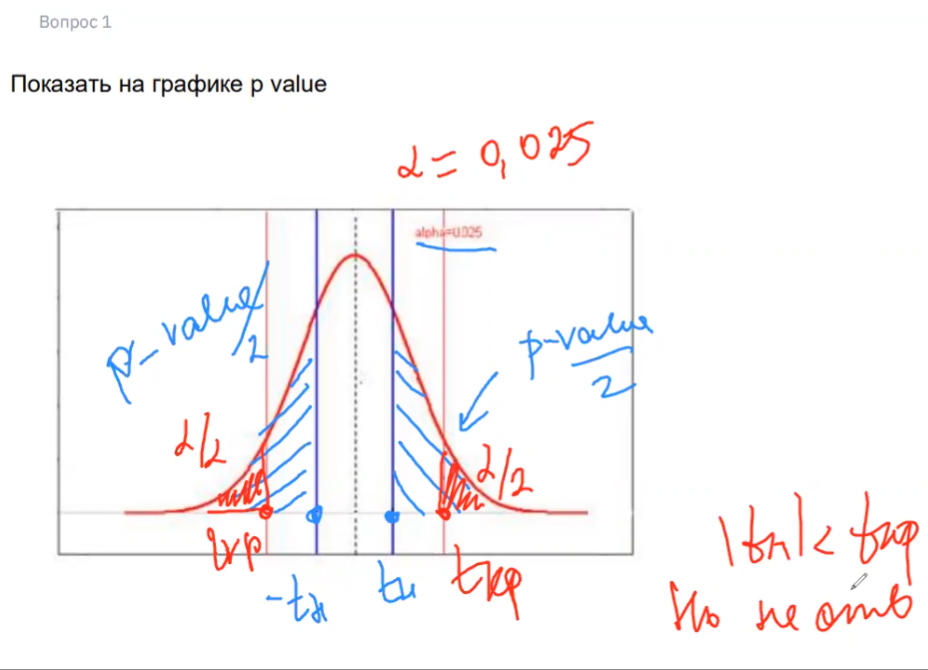 Вопрос 1
Показать на графике p value
α = 0,025
alpha=0.025
p-value/2
p-value
2
α/2
α/2
-tн
tн
tкр
|tн| < tкр
H₀ не отв